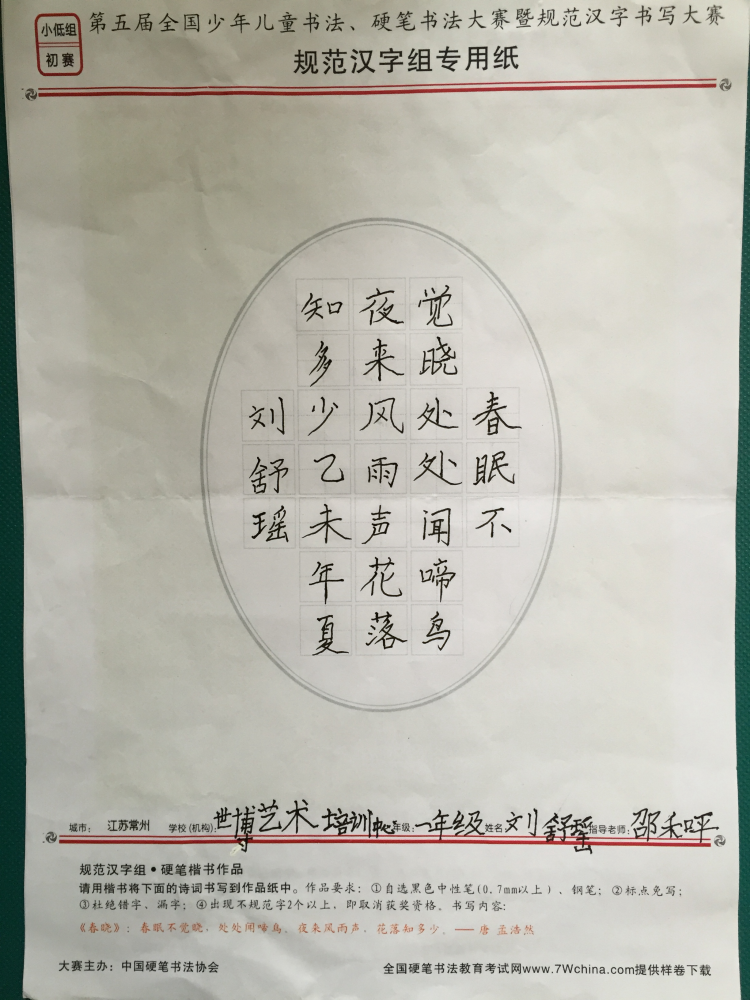 小低组
初赛
第五届全国少年儿童书法、硬笔书法大赛暨规范汉字书写大赛
规范汉字组专用纸
春眠不
觉晓处处闻啼鸟
夜来风雨声花落
知多少乙未年夏
刘舒瑶
城市： 江苏常州 学校(机构)：世博艺术培训中心 年级：一年级 姓名：刘舒瑶 指导老师：邵禾呯
规范汉字组•硬笔楷书作品
请用楷书将下面的诗词书写到作品纸中。作品要求：①自选黑色中性笔(0.7mm以上)、钢笔；②标点免写；
③杜绝错字、漏字；④出现不规范字2个以上，即取消获奖资格。书写内容：
《春晓》：春眠不觉晓，处处闻啼鸟。夜来风雨声，花落知多少。——唐 孟浩然
大赛主办：中国硬笔书法协会
全国硬笔书法教育考试网www.7Wchina.com提供样卷下载